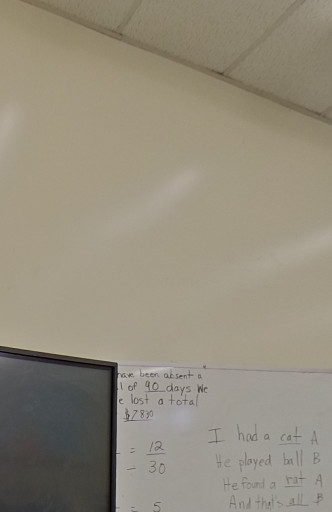 have been absent a
l of 90 days We
e lost a total
$7830
= 12
30
= 5
I had a cat A
He played ball B
He found a rat A
And that's all B